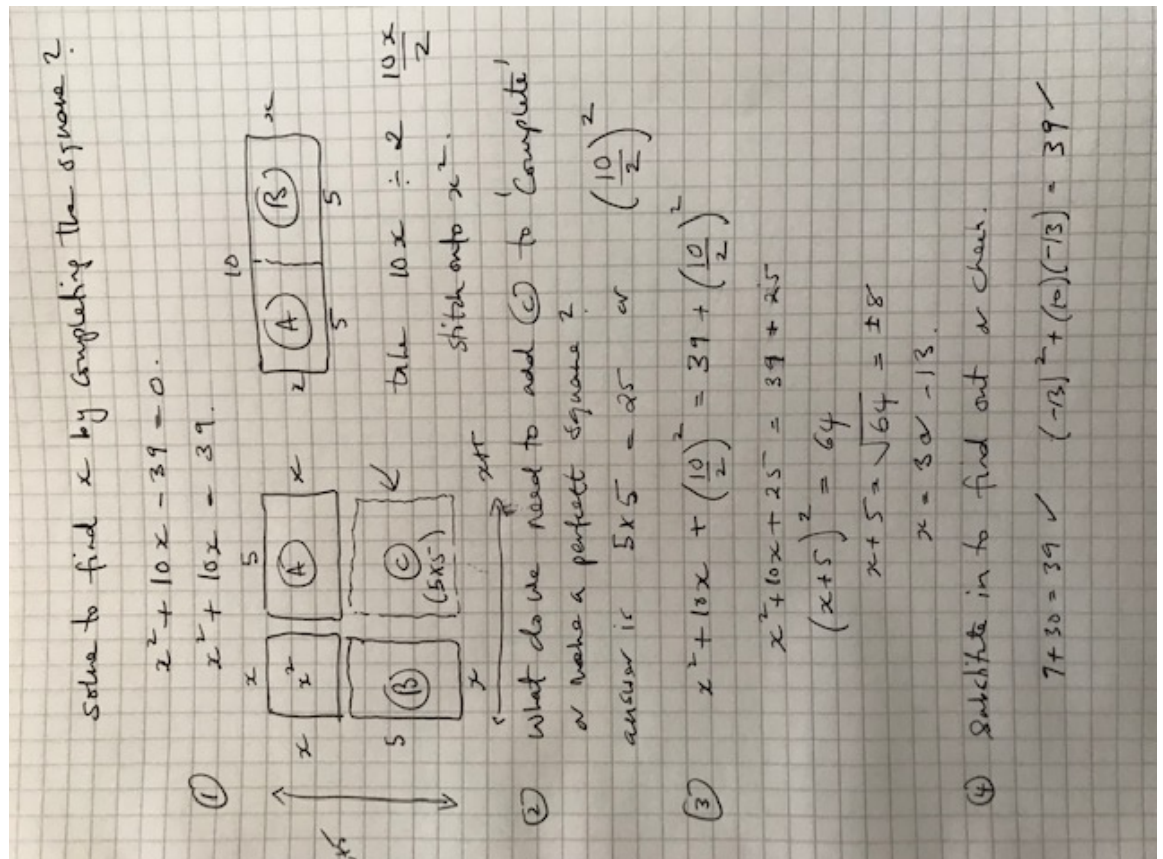 solve to find x by completing the square?
x² + 10x - 39 = 0.
① x² + 10x = 39.
x 5
x x² Ⓐ x
5 Ⓑ Ⓒ (5x5)
x
x+5
10
x Ⓐ Ⓑ x
5 5
take 10x ÷ 2 10x/2
stitch onto x².
② What do we need to add Ⓒ to 'Complete'
or make a perfect square?
answer is 5x5 = 25 or (10/2)²
③ x² + 10x + (10/2)² = 39 + (10/2)²
x² + 10x + 25 = 39 + 25
(x+5)² = 64
x + 5 = √64 = ±8
x = 3 or -13.
④ Substitute in to find out or check.
9 + 30 = 39 ✓ (-13)² + (10)(-13) = 39 ✓